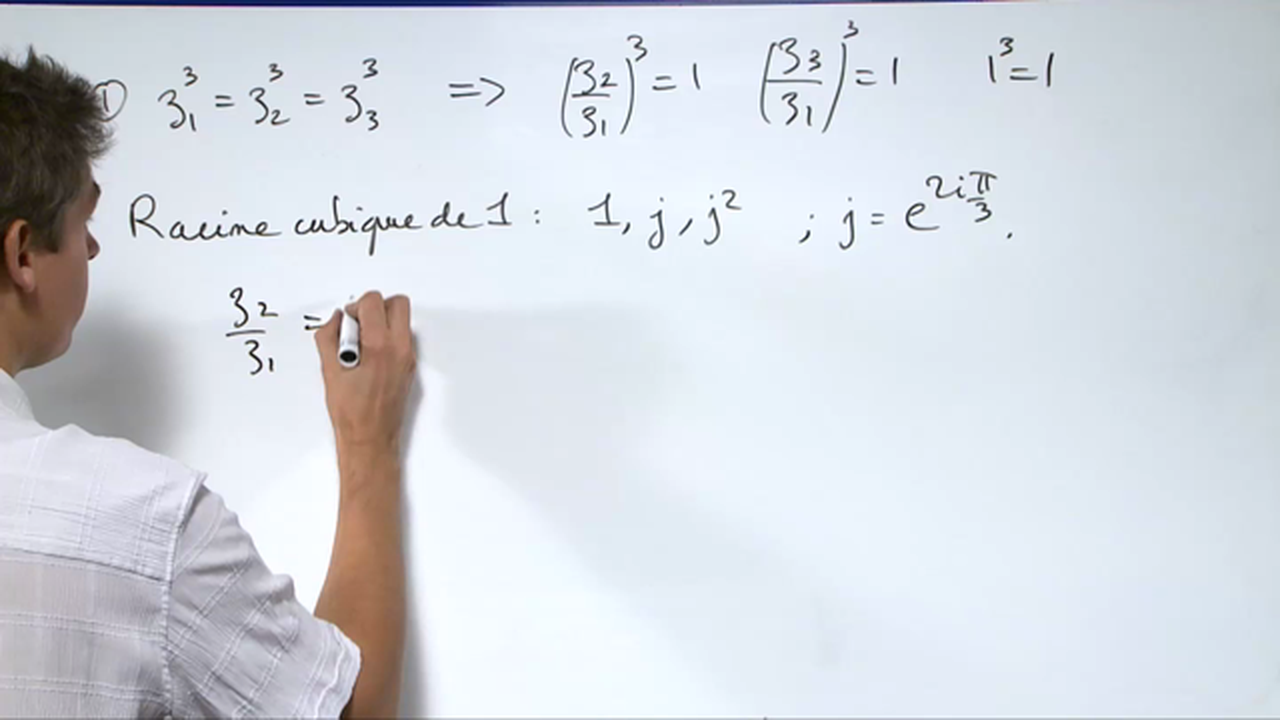 ① z₁³ = z₂³ = z₃³ => (z₂/z₁)³ = 1 (z₃/z₁)³ = 1 1³ = 1
Racine cubique de 1 : 1, j, j² ; j = e^(2iπ/3).
z₂/z₁ =